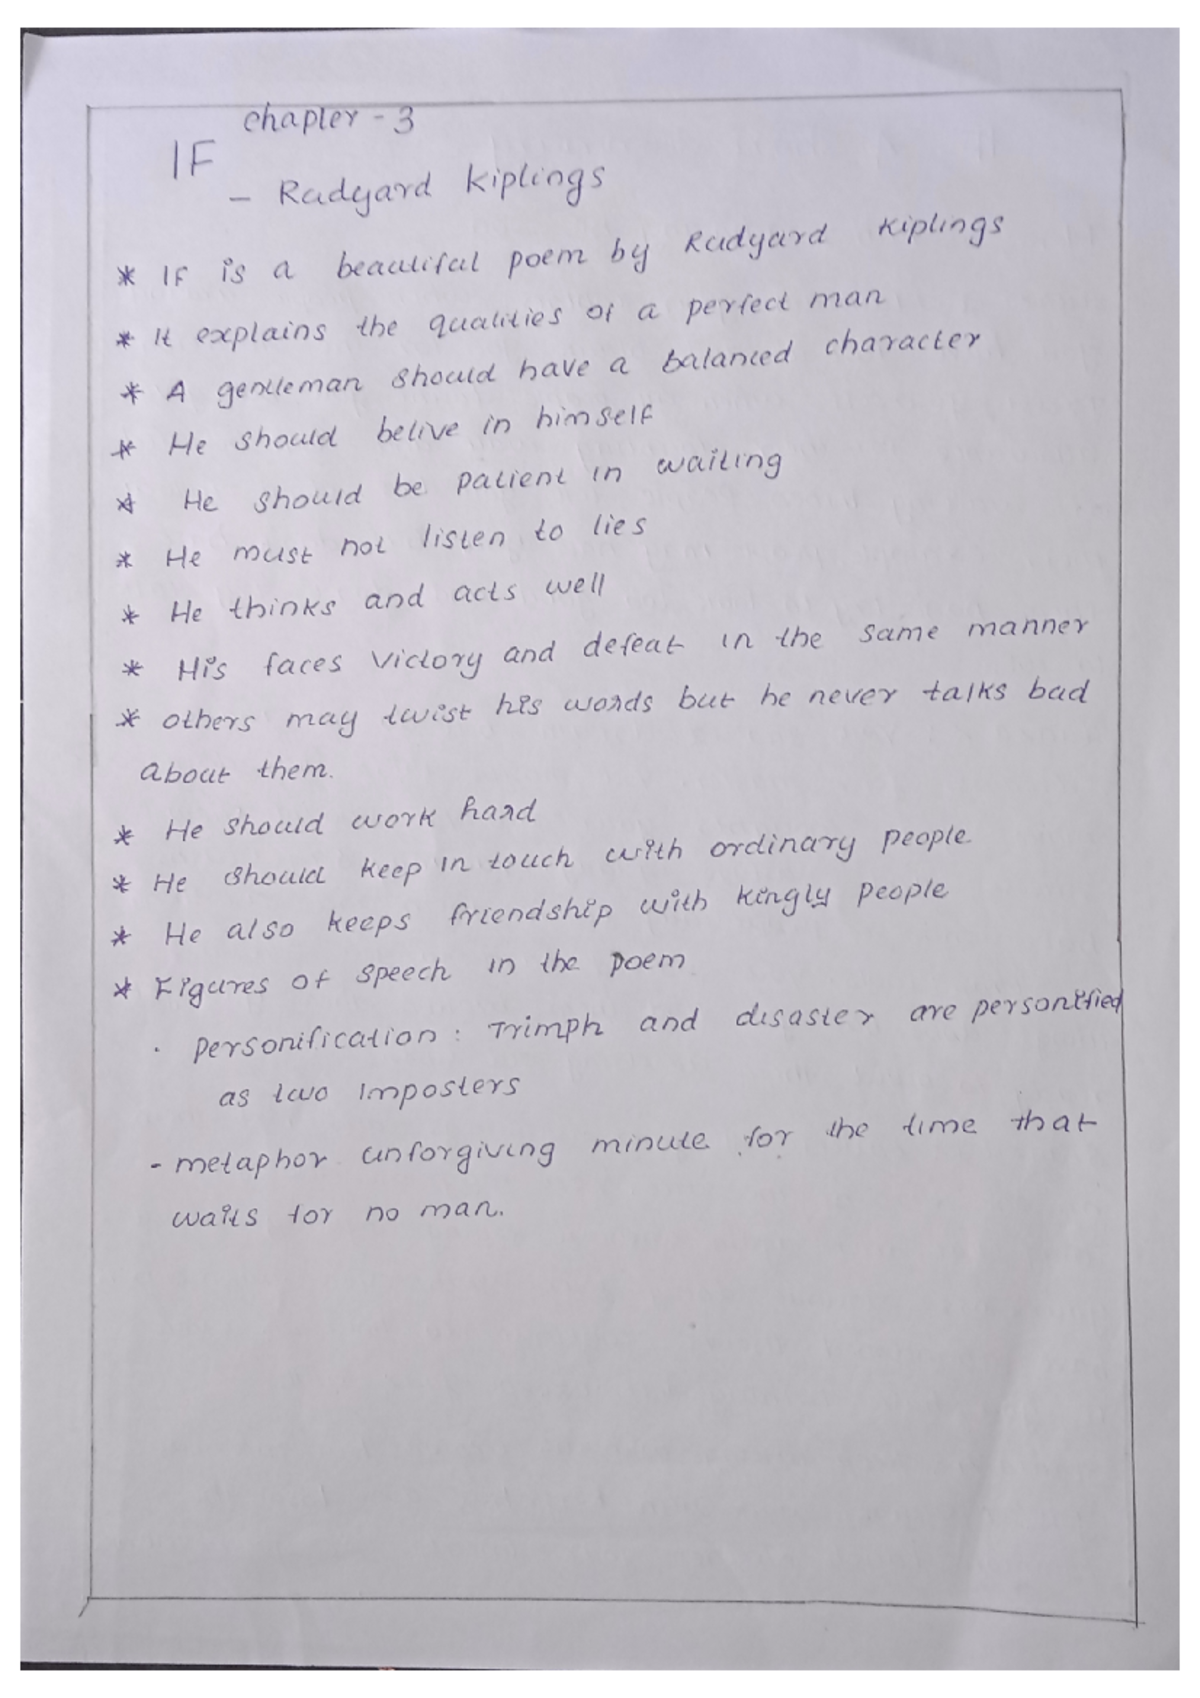 chapter - 3
IF
- Rudyard Kiplings
* IF is a beautiful poem by Rudyard Kiplings
* It explains the qualities of a perfect man
* A gentleman should have a balanced character
* He should belive in himself
* He should be patient in waiting
* He must not listen to lies
* He thinks and acts well
* His faces victory and defeat in the same manner
* others may twist his words but he never talks bad
about them.
* He should work hard
* He should keep in touch with ordinary people
* He also keeps friendship with kingly people
* Figures of speech in the poem
. personification : Trimph and disaster are personified
as two imposters
- metaphor unforgiving minute for the time that
waits for no man.